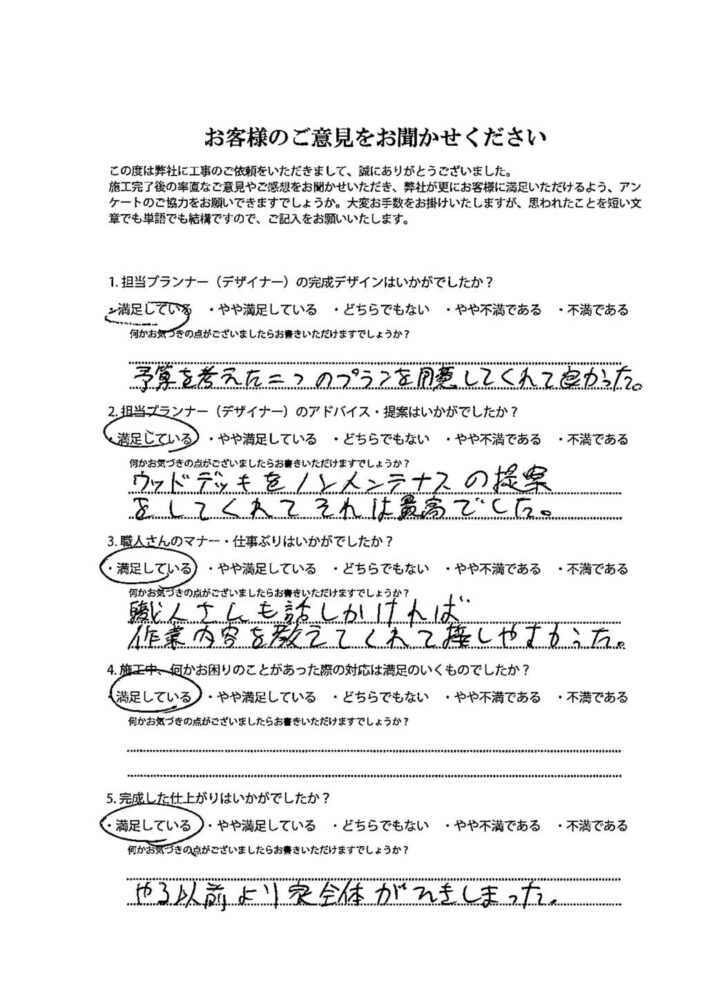 お客様のご意見をお聞かせください
この度は弊社に工事のご依頼をいただきまして、誠にありがとうございました。
施工完了後の率直なご意見やご感想をお聞かせいただき、弊社が更にお客様に満足いただけるよう、アン
ケートのご協力をお願いできますでしょうか。大変お手数をお掛けいたしますが、思われたことを短い文
章でも単語でも結構ですので、ご記入をお願いいたします。
1. 担当プランナー（デザイナー）の完成デザインはいかがでしたか？
・満足している ・やや満足している ・どちらでもない ・やや不満である ・不満である
何かお気づきの点がございましたらお書きいただけますでしょうか？
予算を考えた二つのプランを用意してくれて良かった。
2. 担当プランナー（デザイナー）のアドバイス・提案はいかがでしたか？
・満足している ・やや満足している ・どちらでもない ・やや不満である ・不満である
何かお気づきの点がございましたらお書きいただけますでしょうか？
ウッドデッキをノンメンテナスの提案
をしてくれてそれは最高でした。
3. 職人さんのマナー・仕事ぶりはいかがでしたか？
・満足している ・やや満足している ・どちらでもない ・やや不満である ・不満である
何かお気づきの点がございましたらお書きいただけますでしょうか？
職人さんも話しかければ
作業内容を教えてくれて接しやすかった。
4. 施工中、何かお困りのことがあった際の対応は満足のいくものでしたか？
・満足している ・やや満足している ・どちらでもない ・やや不満である ・不満である
何かお気づきの点がございましたらお書きいただけますでしょうか？
5. 完成した仕上がりはいかがでしたか？
・満足している ・やや満足している ・どちらでもない ・やや不満である ・不満である
何かお気づきの点がございましたらお書きいただけますでしょうか？
やる以前より家全体がひきしまった。